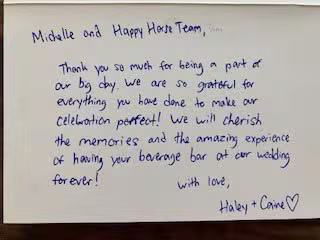 Michelle and Happy Horse Team,
Thank you so much for being a part of
our big day. We are so grateful for
everything you have done to make our
celebration perfect! We will cherish
the memories and the amazing experience
of having your beverage bar at our wedding
forever!
With love,
Haley + Caine ♡